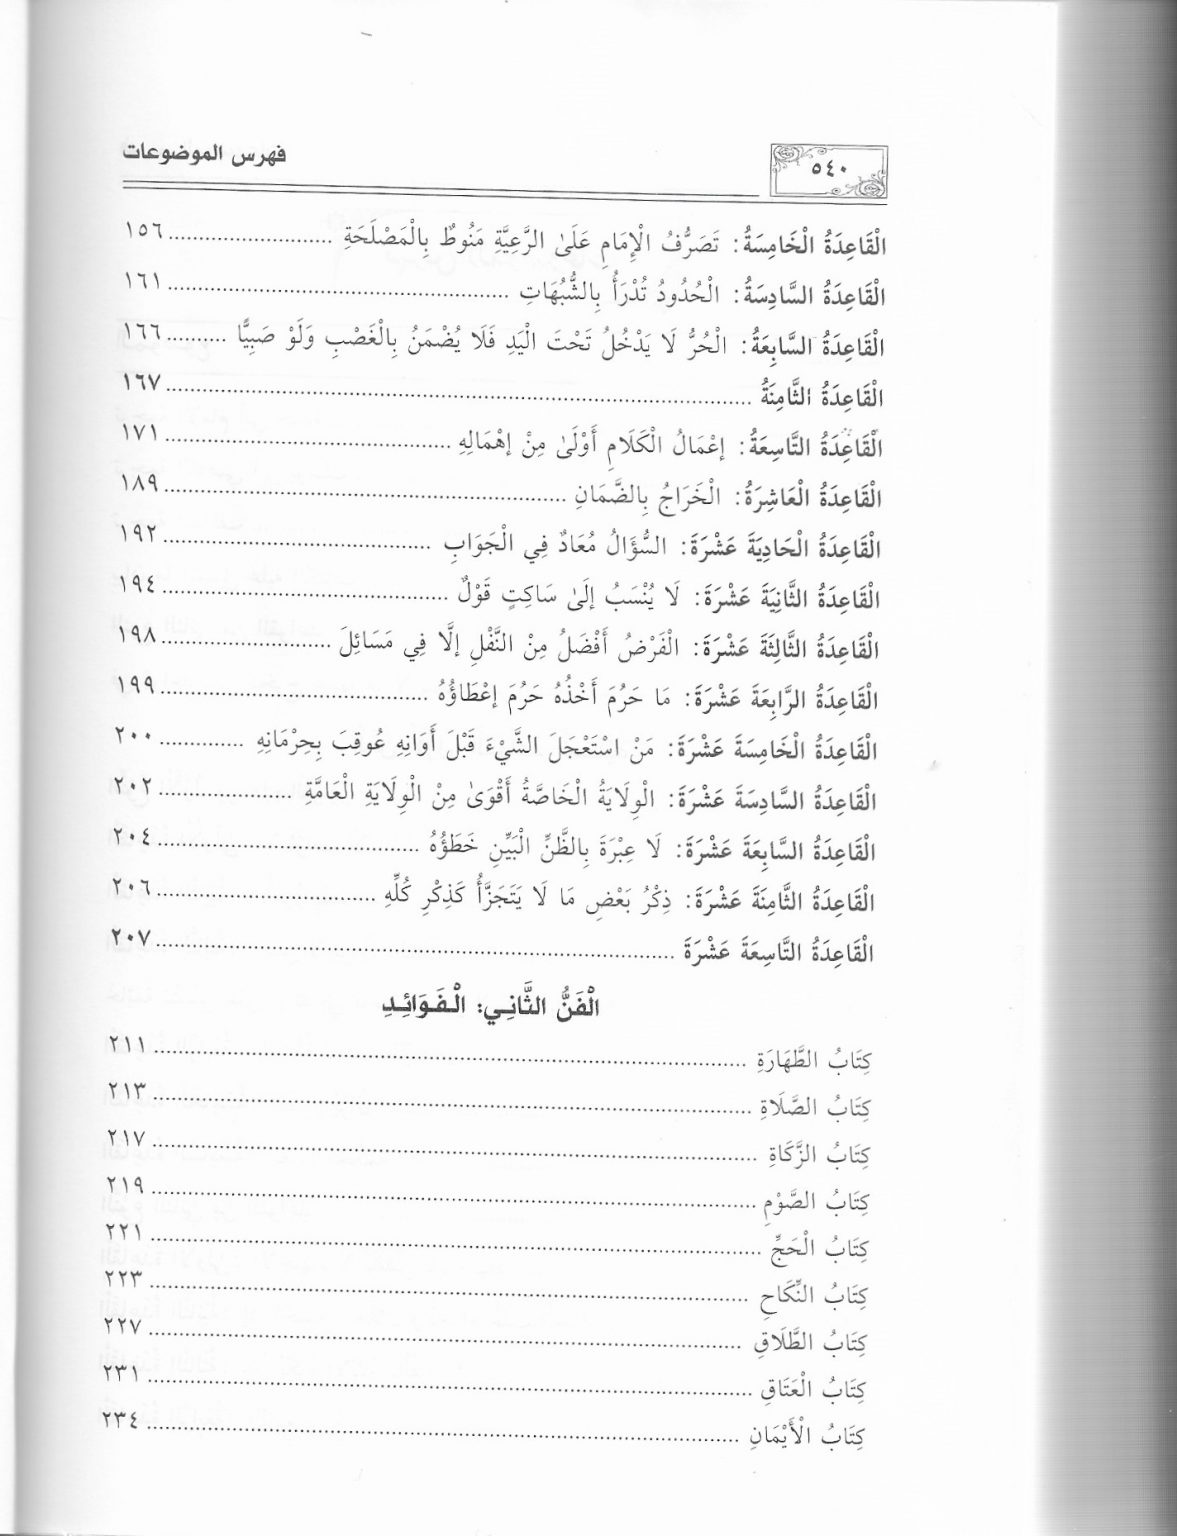 ٥٤٠ فهرس الموضوعات
الْقَاعِدَةُ الْخَامِسَةُ: تَصَرُّفُ الْإِمَامِ عَلَىٰ الرَّعِيَّةِ مَنُوطٌ بِالْمَصْلَحَةِ ........ ١٥٦
الْقَاعِدَةُ السَّادِسَةُ: الْحُدُودُ تُدْرَأُ بِالشُّبُهَاتِ ........ ١٦١
الْقَاعِدَةُ السَّابِعَةُ: الْحُرُّ لَا يَدْخُلُ تَحْتَ الْيَدِ فَلَا يُضْمَنُ بِالْغَصْبِ وَلَوْ صَبِيًّا ........ ١٦٦
الْقَاعِدَةُ الثَّامِنَةُ ........ ١٦٧
الْقَاعِدَةُ التَّاسِعَةُ: إِعْمَالُ الْكَلَامِ أَوْلَىٰ مِنْ إِهْمَالِهِ ........ ١٧١
الْقَاعِدَةُ الْعَاشِرَةُ: الْخَرَاجُ بِالضَّمَانِ ........ ١٨٩
الْقَاعِدَةُ الْحَادِيَةَ عَشْرَةَ: السُّؤَالُ مُعَادٌ فِي الْجَوَابِ ........ ١٩٢
الْقَاعِدَةُ الثَّانِيَةَ عَشْرَةَ: لَا يُنْسَبُ إِلَىٰ سَاكِتٍ قَوْلٌ ........ ١٩٤
الْقَاعِدَةُ الثَّالِثَةَ عَشْرَةَ: الْفَرْضُ أَفْضَلُ مِنْ النَّفْلِ إِلَّا فِي مَسَائِلَ ........ ١٩٨
الْقَاعِدَةُ الرَّابِعَةَ عَشْرَةَ: مَا حَرُمَ أَخْذُهُ حَرُمَ إِعْطَاؤُهُ ........ ١٩٩
الْقَاعِدَةُ الْخَامِسَةَ عَشْرَةَ: مَنْ اسْتَعْجَلَ الشَّيْءَ قَبْلَ أَوَانِهِ عُوقِبَ بِحِرْمَانِهِ ........ ٢٠٠
الْقَاعِدَةُ السَّادِسَةَ عَشْرَةَ: الْوِلَايَةُ الْخَاصَّةُ أَقْوَىٰ مِنْ الْوِلَايَةِ الْعَامَّةِ ........ ٢٠٢
الْقَاعِدَةُ السَّابِعَةَ عَشْرَةَ: لَا عِبْرَةَ بِالظَّنِّ الْبَيِّنِ خَطَؤُهُ ........ ٢٠٤
الْقَاعِدَةُ الثَّامِنَةَ عَشْرَةَ: ذِكْرُ بَعْضِ مَا لَا يَتَجَزَّأُ كَذِكْرِ كُلِّهِ ........ ٢٠٦
الْقَاعِدَةُ التَّاسِعَةَ عَشْرَةَ ........ ٢٠٧
الْفَنُّ الثَّانِي: الْفَوَائِدِ
كِتَابُ الطَّهَارَةِ ........ ٢١١
كِتَابُ الصَّلَاةِ ........ ٢١٣
كِتَابُ الزَّكَاةِ ........ ٢١٧
كِتَابُ الصَّوْمِ ........ ٢١٩
كِتَابُ الْحَجِّ ........ ٢٢١
كِتَابُ النِّكَاحِ ........ ٢٢٣
كِتَابُ الطَّلَاقِ ........ ٢٢٧
كِتَابُ الْعَتَاقِ ........ ٢٣١
كِتَابُ الْأَيْمَانِ ........ ٢٣٤